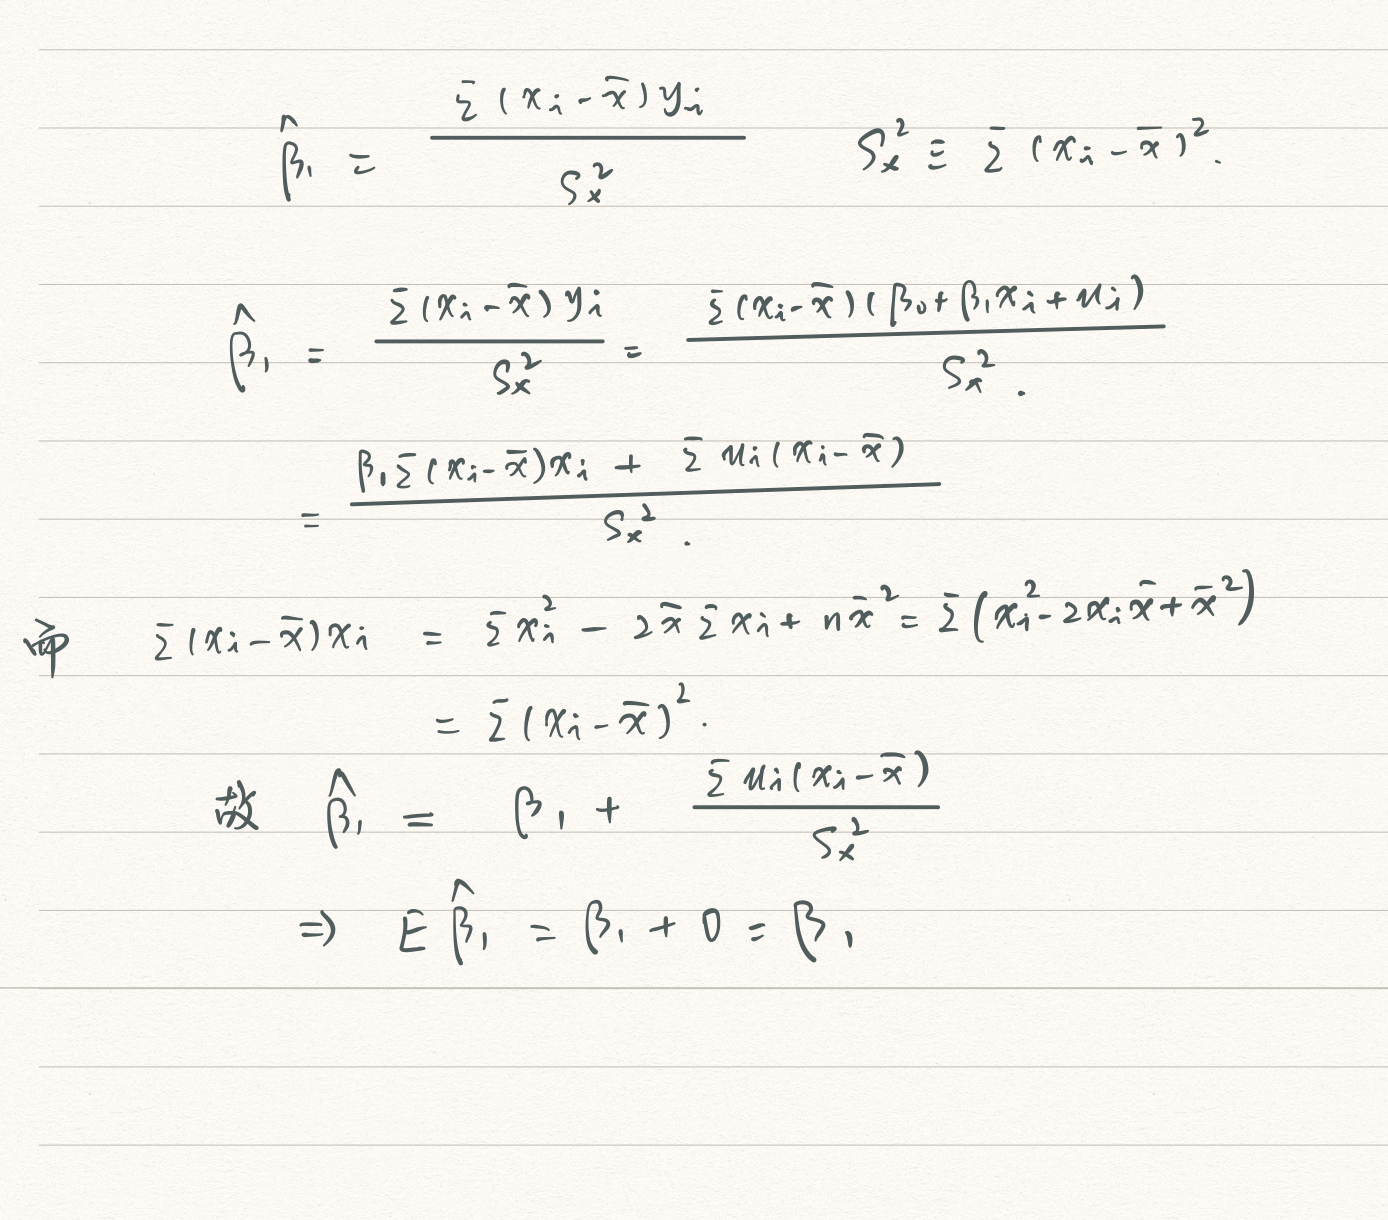 β̂₁ = Σ(xᵢ-x̄)yᵢ / Sₓ²    Sₓ² ≡ Σ(xᵢ-x̄)².
β̂₁ = Σ(xᵢ-x̄)yᵢ / Sₓ² = Σ(xᵢ-x̄)(β₀+β₁xᵢ+uᵢ) / Sₓ².
= (β₁Σ(xᵢ-x̄)xᵢ + Σuᵢ(xᵢ-x̄)) / Sₓ².
Σ(xᵢ-x̄)xᵢ = Σxᵢ² - 2x̄Σxᵢ + nx̄² = Σ(xᵢ²-2xᵢx̄+x̄²)
= Σ(xᵢ-x̄)².
故 β̂₁ = β₁ + Σuᵢ(xᵢ-x̄) / Sₓ²
⇒ Eβ̂₁ = β₁ + 0 = β₁